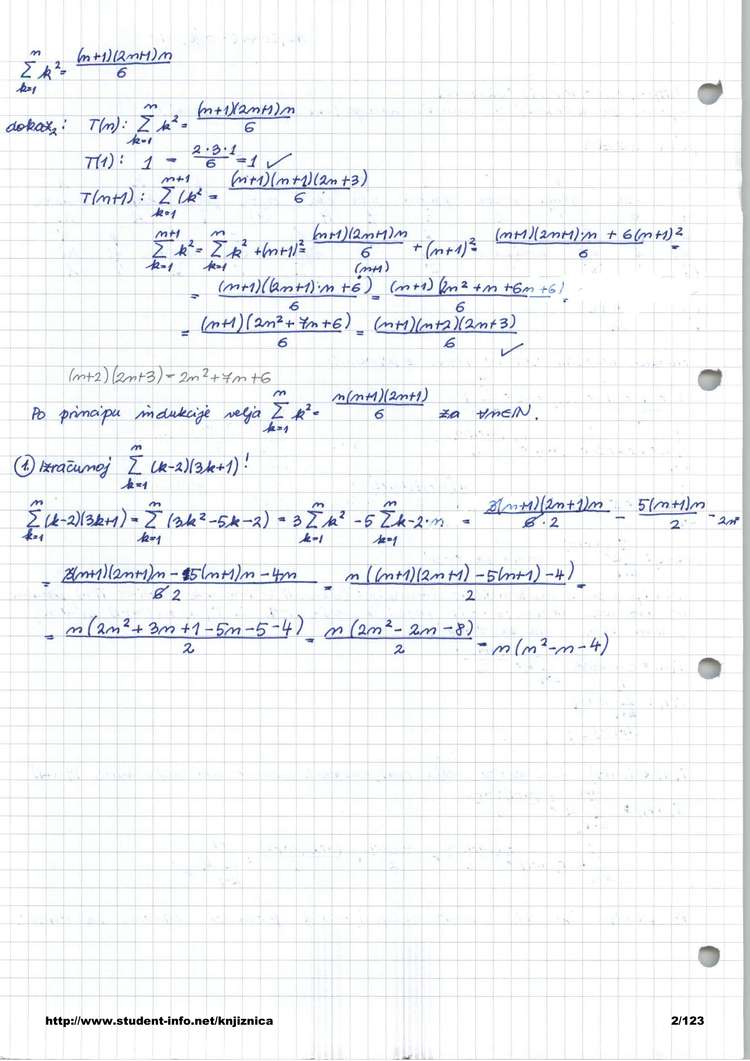 n∑k=1 k² = (n+1)(2n+1)n / 6
dokaz: T(n): n∑k=1 k² = (n+1)(2n+1)n / 6
T(1): 1 = 2·3·1 / 6 = 1 ✓
T(n+1): n+1∑k=1 (k² = (n+1)(n+2)(2n+3) / 6
n+1∑k=1 k² = n∑k=1 k² + (n+1)² = (n+1)(2n+1)n / 6 + (n+1)² = (n+1)(2n+1)·n + 6(n+1)² / 6 =
= (n+1)((2n+1)·n + 6 (n+1)) / 6 = (n+1)(2n² + n + 6n + 6) / 6 =
= (n+1)(2n² + 7n + 6) / 6 = (n+1)(n+2)(2n+3) / 6 ✓
(n+2)(2n+3) = 2n² + 7n + 6
Po principu indukcije velja n∑k=1 k² = n(n+1)(2n+1) / 6 za ∀n∈ℕ.
① Izračunaj n∑k=1 (k-2)(3k+1)!
n∑k=1 (k-2)(3k+1) = n∑k=1 (3k² - 5k - 2) = 3 n∑k=1 k² - 5 n∑k=1 k - 2·n = 3(n+1)(2n+1)n / 6·2 - 5(n+1)n / 2 - 2n =
= (n+1)(2n+1)n - 5(n+1)n - 4n / 6 2 = n((n+1)(2n+1) - 5(n+1) - 4) / 2 =
= n(2n² + 3n + 1 - 5n - 5 - 4) / 2 = n(2n² - 2n - 8) / 2 = n(n² - n - 4)
http://www.student-info.net/knjiznica 2/123